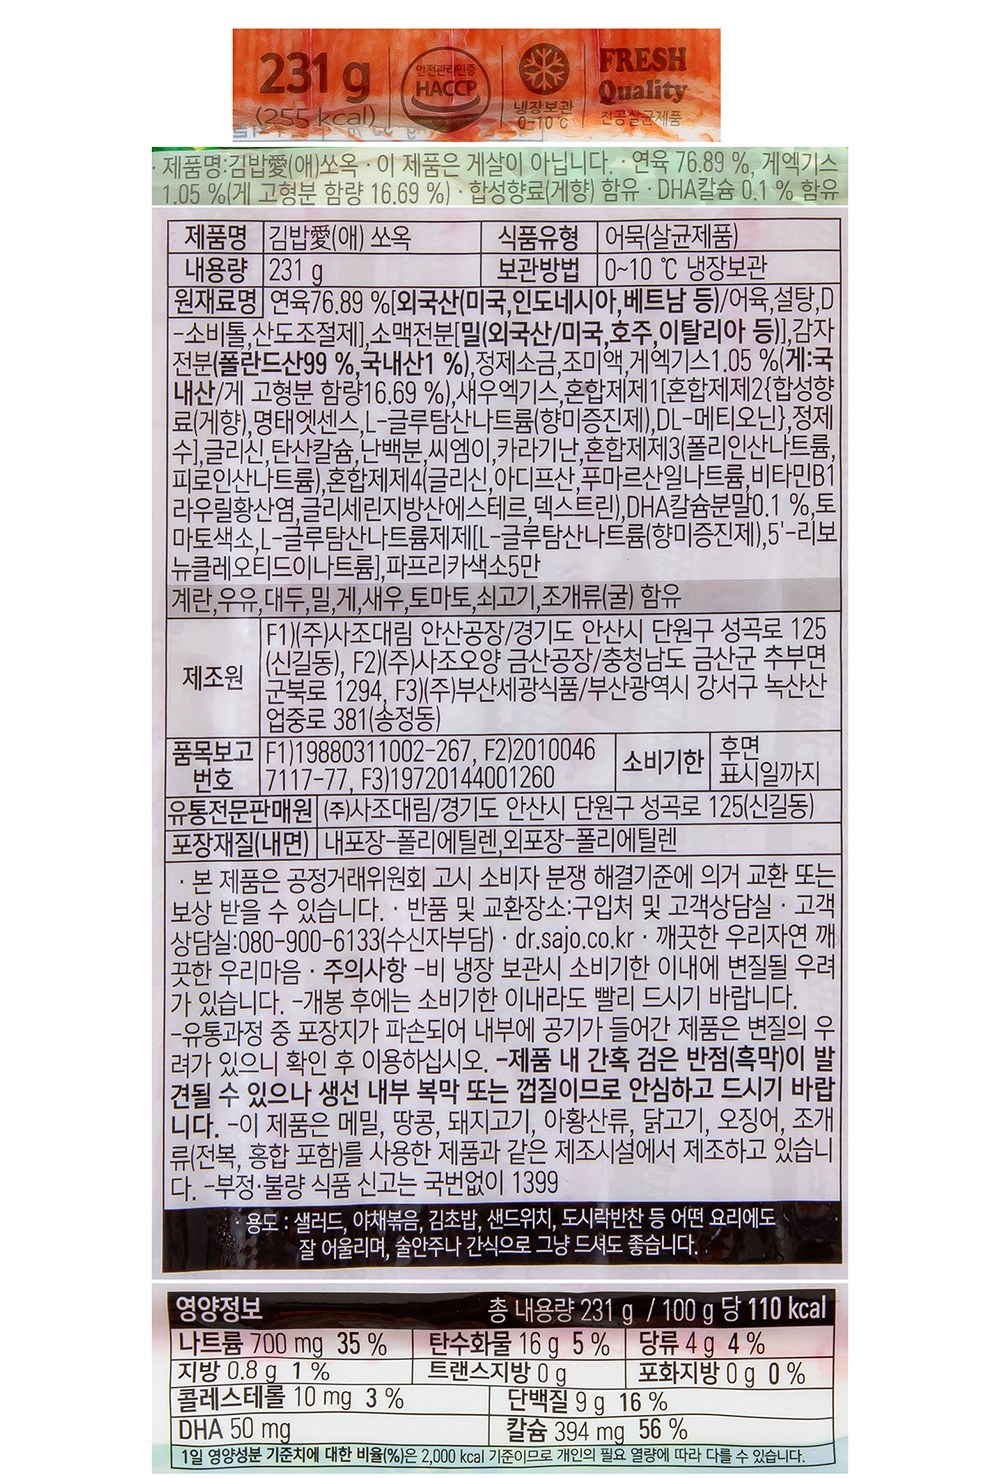 231 g
(255 kcal)
안전관리인증
HACCP
냉장보관
0-10℃
FRESH
Quality
진공살균제품
· 제품명:김밥愛(애)쏘옥 · 이 제품은 게살이 아닙니다. · 연육 76.89 %, 게엑기스
1.05 %(게 고형분 함량 16.69 %) · 합성향료(게향) 함유 · DHA칼슘 0.1 % 함유
제품명 김밥愛(애) 쏘옥 식품유형 어묵(살균제품)
내용량 231 g 보관방법 0~10 ℃ 냉장보관
원재료명 연육76.89 %[외국산(미국,인도네시아,베트남 등)/어육,설탕,D
-소비톨,산도조절제],소맥전분[밀(외국산/미국,호주,이탈리아 등)],감자
전분(폴란드산99 %,국내산1 %),정제소금,조미액,게엑기스1.05 %(게:국
내산/게 고형분 함량16.69 %),새우엑기스,혼합제제1[혼합제제2{합성향
료(게향),명태엣센스,L-글루탐산나트륨(향미증진제),DL-메티오닌},정제
수],글리신,탄산칼슘,난백분,씨엠이,카라기난,혼합제제3(폴리인산나트륨,
피로인산나트륨),혼합제제4(글리신,아디프산,푸마르산일나트륨,비타민B1
라우릴황산염,글리세린지방산에스테르,덱스트린),DHA칼슘분말0.1 %,토
마토색소,L-글루탐산나트륨제제[L-글루탐산나트륨(향미증진제),5'-리보
뉴클레오티드이나트륨],파프리카색소5만
계란,우유,대두,밀,게,새우,토마토,쇠고기,조개류(굴) 함유
제조원 F1)(주)사조대림 안산공장/경기도 안산시 단원구 성곡로 125
(신길동), F2)(주)사조오양 금산공장/충청남도 금산군 추부면
군북로 1294, F3)(주)부산세광식품/부산광역시 강서구 녹산산
업중로 381(송정동)
품목보고번호 F1)19880311002-267, F2)2010046
7117-77, F3)19720144001260
소비기한 후면
표시일까지
유통전문판매원 (주)사조대림/경기도 안산시 단원구 성곡로 125(신길동)
포장재질(내면) 내포장-폴리에틸렌,외포장-폴리에틸렌
· 본 제품은 공정거래위원회 고시 소비자 분쟁 해결기준에 의거 교환 또는
보상 받을 수 있습니다. · 반품 및 교환장소:구입처 및 고객상담실 · 고객
상담실:080-900-6133(수신자부담) · dr.sajo.co.kr · 깨끗한 우리자연 깨
끗한 우리마음 · 주의사항 -비 냉장 보관시 소비기한 이내에 변질될 우려
가 있습니다. -개봉 후에는 소비기한 이내라도 빨리 드시기 바랍니다.
-유통과정 중 포장지가 파손되어 내부에 공기가 들어간 제품은 변질의 우
려가 있으니 확인 후 이용하십시오. -제품 내 간혹 검은 반점(흑막)이 발
견될 수 있으나 생선 내부 복막 또는 껍질이므로 안심하고 드시기 바랍
니다. -이 제품은 메밀, 땅콩, 돼지고기, 아황산류, 닭고기, 오징어, 조개
류(전복, 홍합 포함)를 사용한 제품과 같은 제조시설에서 제조하고 있습니
다. -부정·불량 식품 신고는 국번없이 1399
· 용도 : 샐러드, 야채볶음, 김초밥, 샌드위치, 도시락반찬 등 어떤 요리에도
잘 어울리며, 술안주나 간식으로 그냥 드셔도 좋습니다.
영양정보 총 내용량 231 g / 100 g 당 110 kcal
나트륨 700 mg 35 % 탄수화물 16 g 5 % 당류 4 g 4 %
지방 0.8 g 1 % 트랜스지방 0 g 포화지방 0 g 0 %
콜레스테롤 10 mg 3 % 단백질 9 g 16 %
DHA 50 mg 칼슘 394 mg 56 %
1일 영양성분 기준치에 대한 비율(%)은 2,000 kcal 기준이므로 개인의 필요 열량에 따라 다를 수 있습니다.